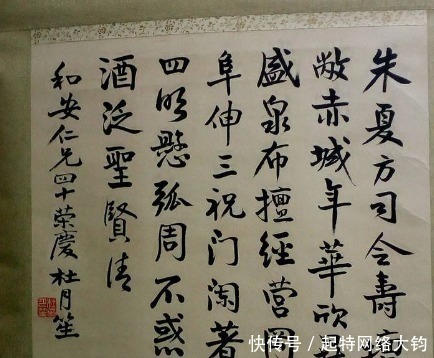 朱夏方司令壽
敞赤城年華欣
盛泉布擅經营
阜伸三祝门阑著
四明懸弧周不惑
酒泛聖賢清
和安仁兄四十荣慶 杜月笙
快传号/起特网络大钧